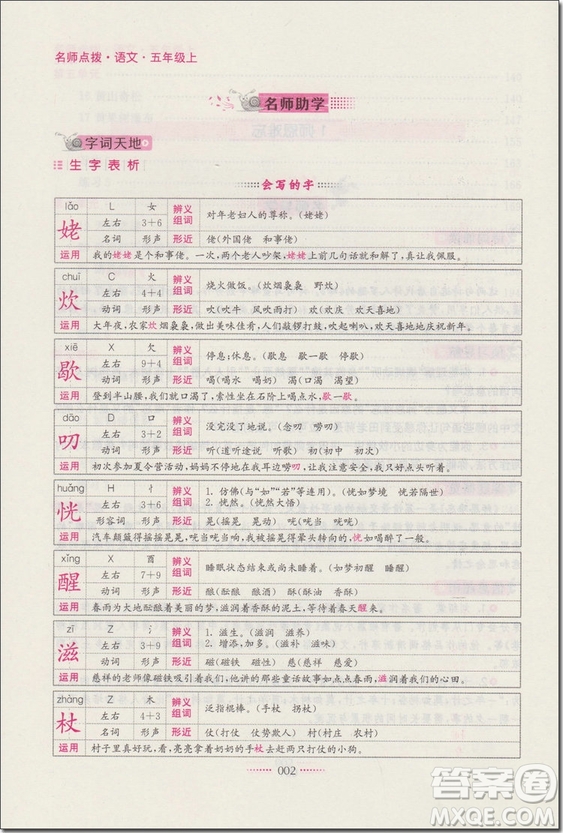 名师点拨·语文·五年级上
名师助学
字词天地
生字表析
会写的字
lǎo L 女 辨义组词 对年老妇人的尊称。(姥姥)
姥 左右 3+6
名词 形声 形近 佬(外国佬 和事佬)
运用 我的姥姥是个和事佬。一次,两个老人吵架,姥姥上前几句话就和解了,真让我佩服。
chuī C 火 辨义组词 烧火做饭。(炊烟袅袅 野炊)
炊 左右 4+4
动词 形声 形近 吹(吹牛 风吹雨打) 欢(欢庆 欢天喜地)
运用 大年夜,农家炊烟袅袅,做出美味佳肴;人们敲锣打鼓,吹起喇叭,欢天喜地地庆祝新年。
xiē X 欠 辨义组词 停息;休息。(歇息 歇一歇 停歇)
歇 左右 9+4
动词 形声 形近 喝(喝水 喝奶) 渴(口渴 渴望)
运用 登到半山腰,我们就口渴了,索性坐在石阶上喝点水,歇一歇。
dāo D 口 辨义组词 没完没了地说。(念叨 唠叨)
叨 左右 3+2
动词 形声 形近 听(听道听途说 听歌) 初(初中 初次)
运用 初次参加夏令营活动,妈妈不停地在耳边唠叨,让我注意安全,我只好点头听着。
huǎng H 忄 辨义组词 1. 仿佛(与“如”“若”等连用)。(恍如梦境 恍若隔世)
2. 恍然。(恍然大悟)
恍 左右 3+6
形容词 形声 形近 晃(摇晃 晃动) 咣(咣当 咣咣)
运用 汽车颠簸得摇摇晃晃,咣当咣当响,我被摇晃得晕头转向的,恍如喝醉了。
xǐng X 酉 辨义组词 睡眠状态结束或尚未睡着。(如梦初醒 睡醒)
醒 左右 7+9
动词 形声 形近 酿(酝酿 酿酒) 酥(酥油 香酥)
运用 春雨为大地酝酿着美丽的梦,滋润着香酥的泥土,上面的嫩草在春天醒来。
zī Z 氵 辨义组词 1. 滋生。(滋润 滋养)
2. 增添,加多。(滋补 滋味)
滋 左右 3+9
动词 形声 形近 磁(磁铁 磁性) 慈(慈祥 慈爱)
运用 慈祥的老师像磁铁吸引着我们,他讲的那些童话故事如点点春雨,滋润着我们的心田。
zhàng Z 木 辨义组词 泛指棍棒。(手杖 拐杖)
杖 左右 4+3
名词 形声 形近 仗(打仗 仗势欺人) 村(村庄 农村)
运用 村子里真好玩,看,亮亮拿着奶奶的手杖去赶两只打仗的小狗。
002
答案圈